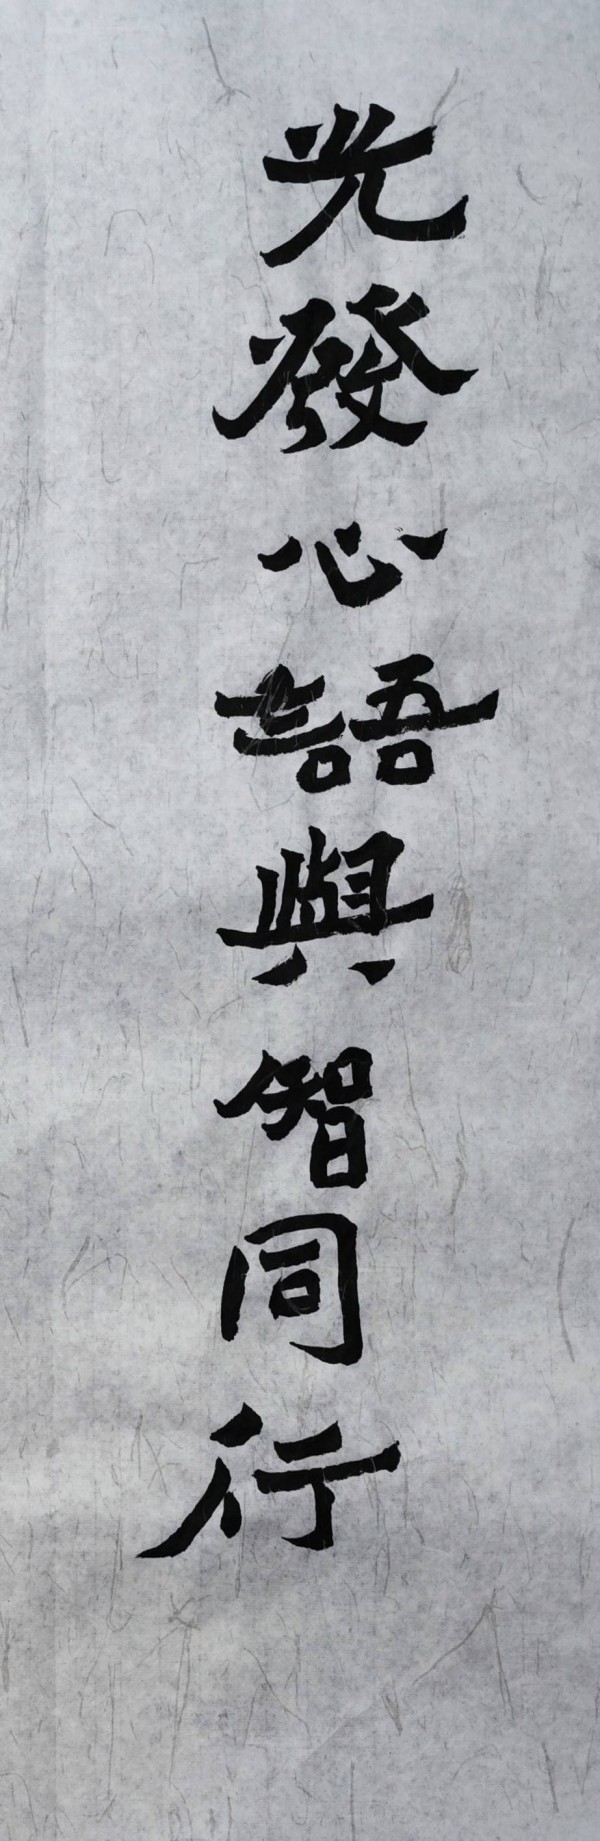 光發心語與智同行